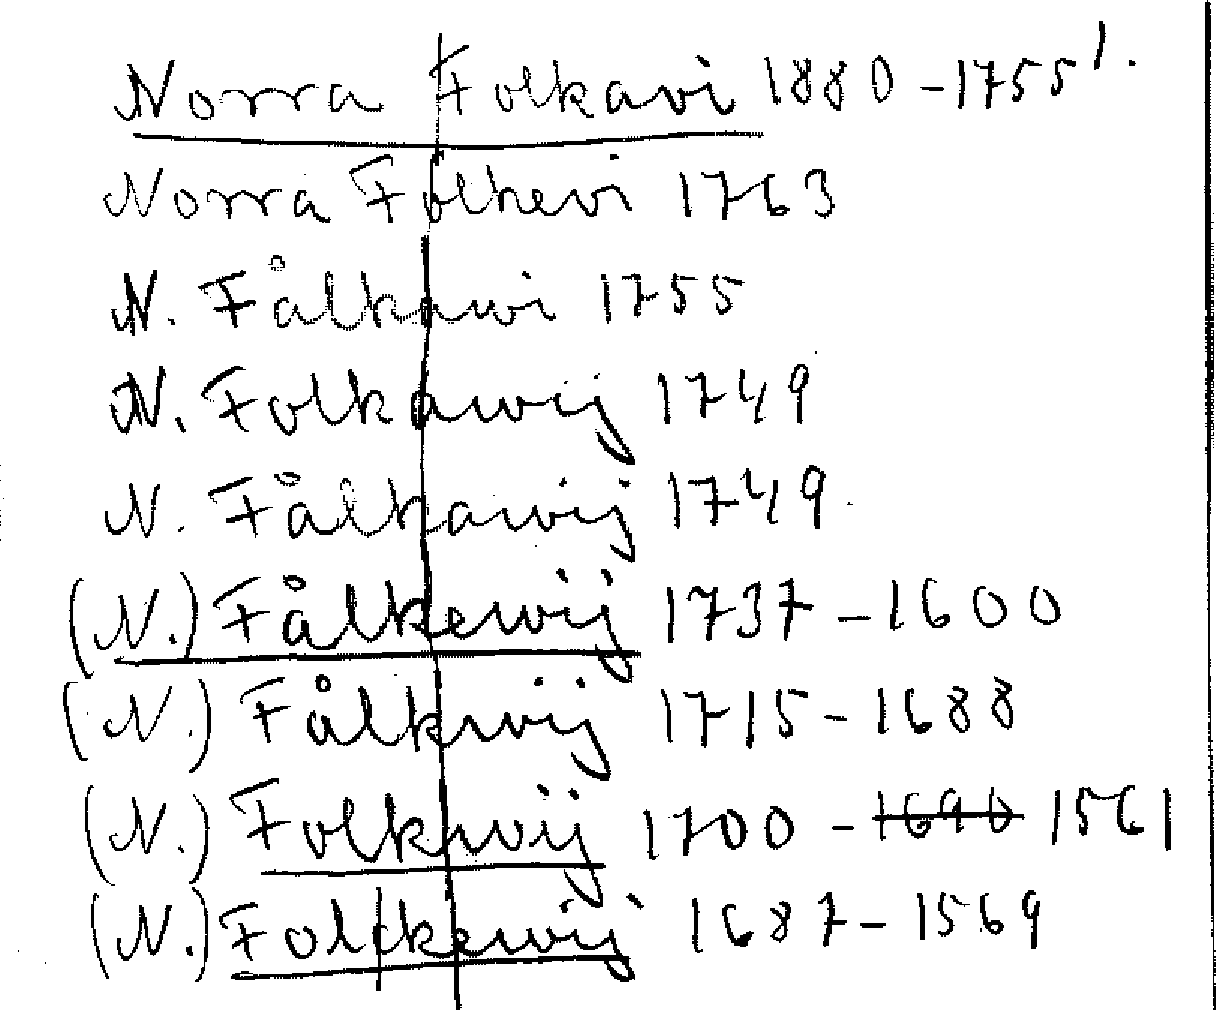 Norra Folkavi 1880-1755 1.
Norra Folkevi 1763
N. Fålkawi 1755
N. Folkawij 1749
N. Fålkawij 1749
(N.) Fålkewij 1737-1600
(N.) Fålkwij 1715-1688
(N.) Folkwij 1700-1690 1561
(N.) Folckewij 1687-1569